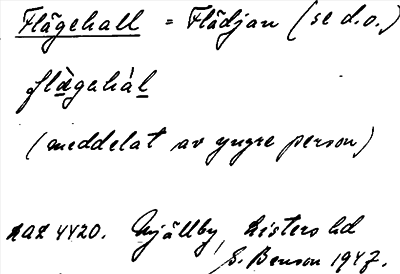 Flågehall = Flådjan (se d.o.)
flàgahál
(meddelat av yngre person)
LAL 4420. Mjällby, Listers hd
S. Benson 1947.